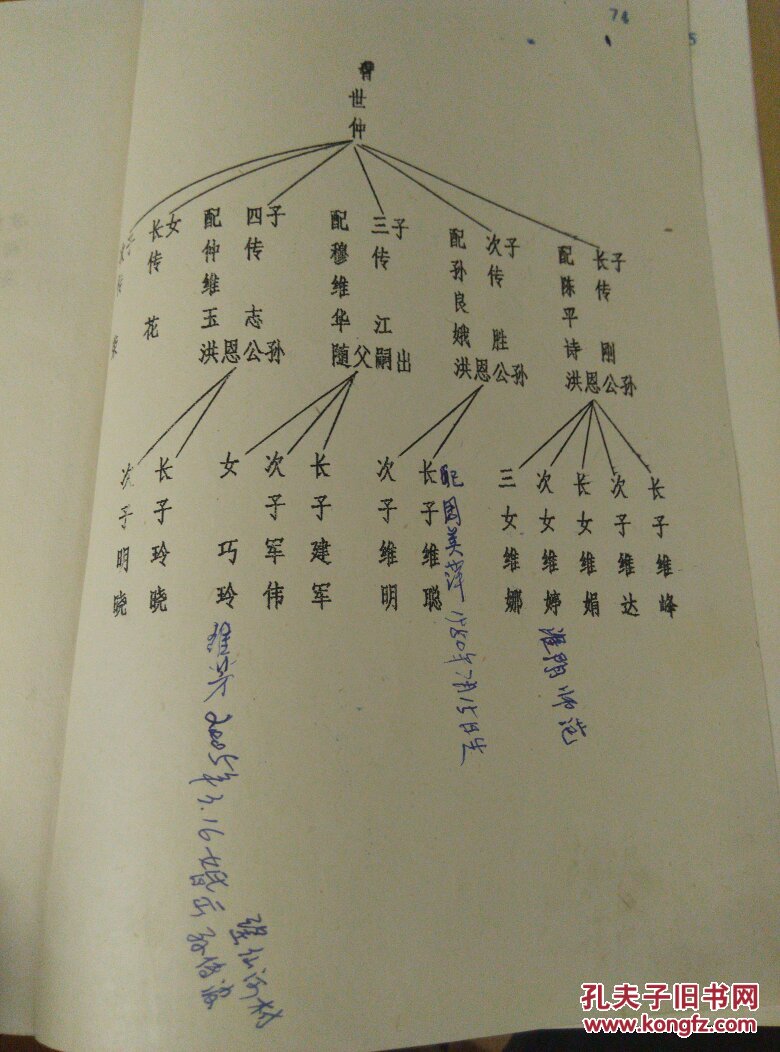 74
5
曾世仲
长子传刚
配陈平诗
洪恩公孙
次子传胜
配孙良娥
洪恩公孙
三子传江
配穆维华
随父嗣出
四子传志
配仲维玉
洪恩公孙
长女传花
次子
长子维峰
次子维达
长女维娟
次女维婷
三女维娜
长子维聪
次子维明
长子建军
次子军伟
女巧玲
长子玲晓
次子明晓
淮阴师范
1980年7月15日生
孔夫子旧书网
www.kongfz.com